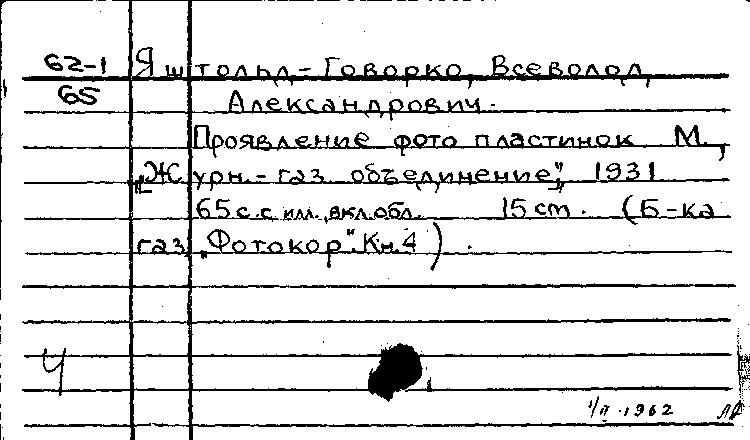 62-1 Яштольд-Говорко, Всеволод
65 Александрович.
Проявление фото пластинок М.,
„Журн.-газ. объединение", 1931
65 с. с илл. вкл. обл. 15 cm. (Б-ка
газ. „Фотокор". Кн. 4).
Ч
1962